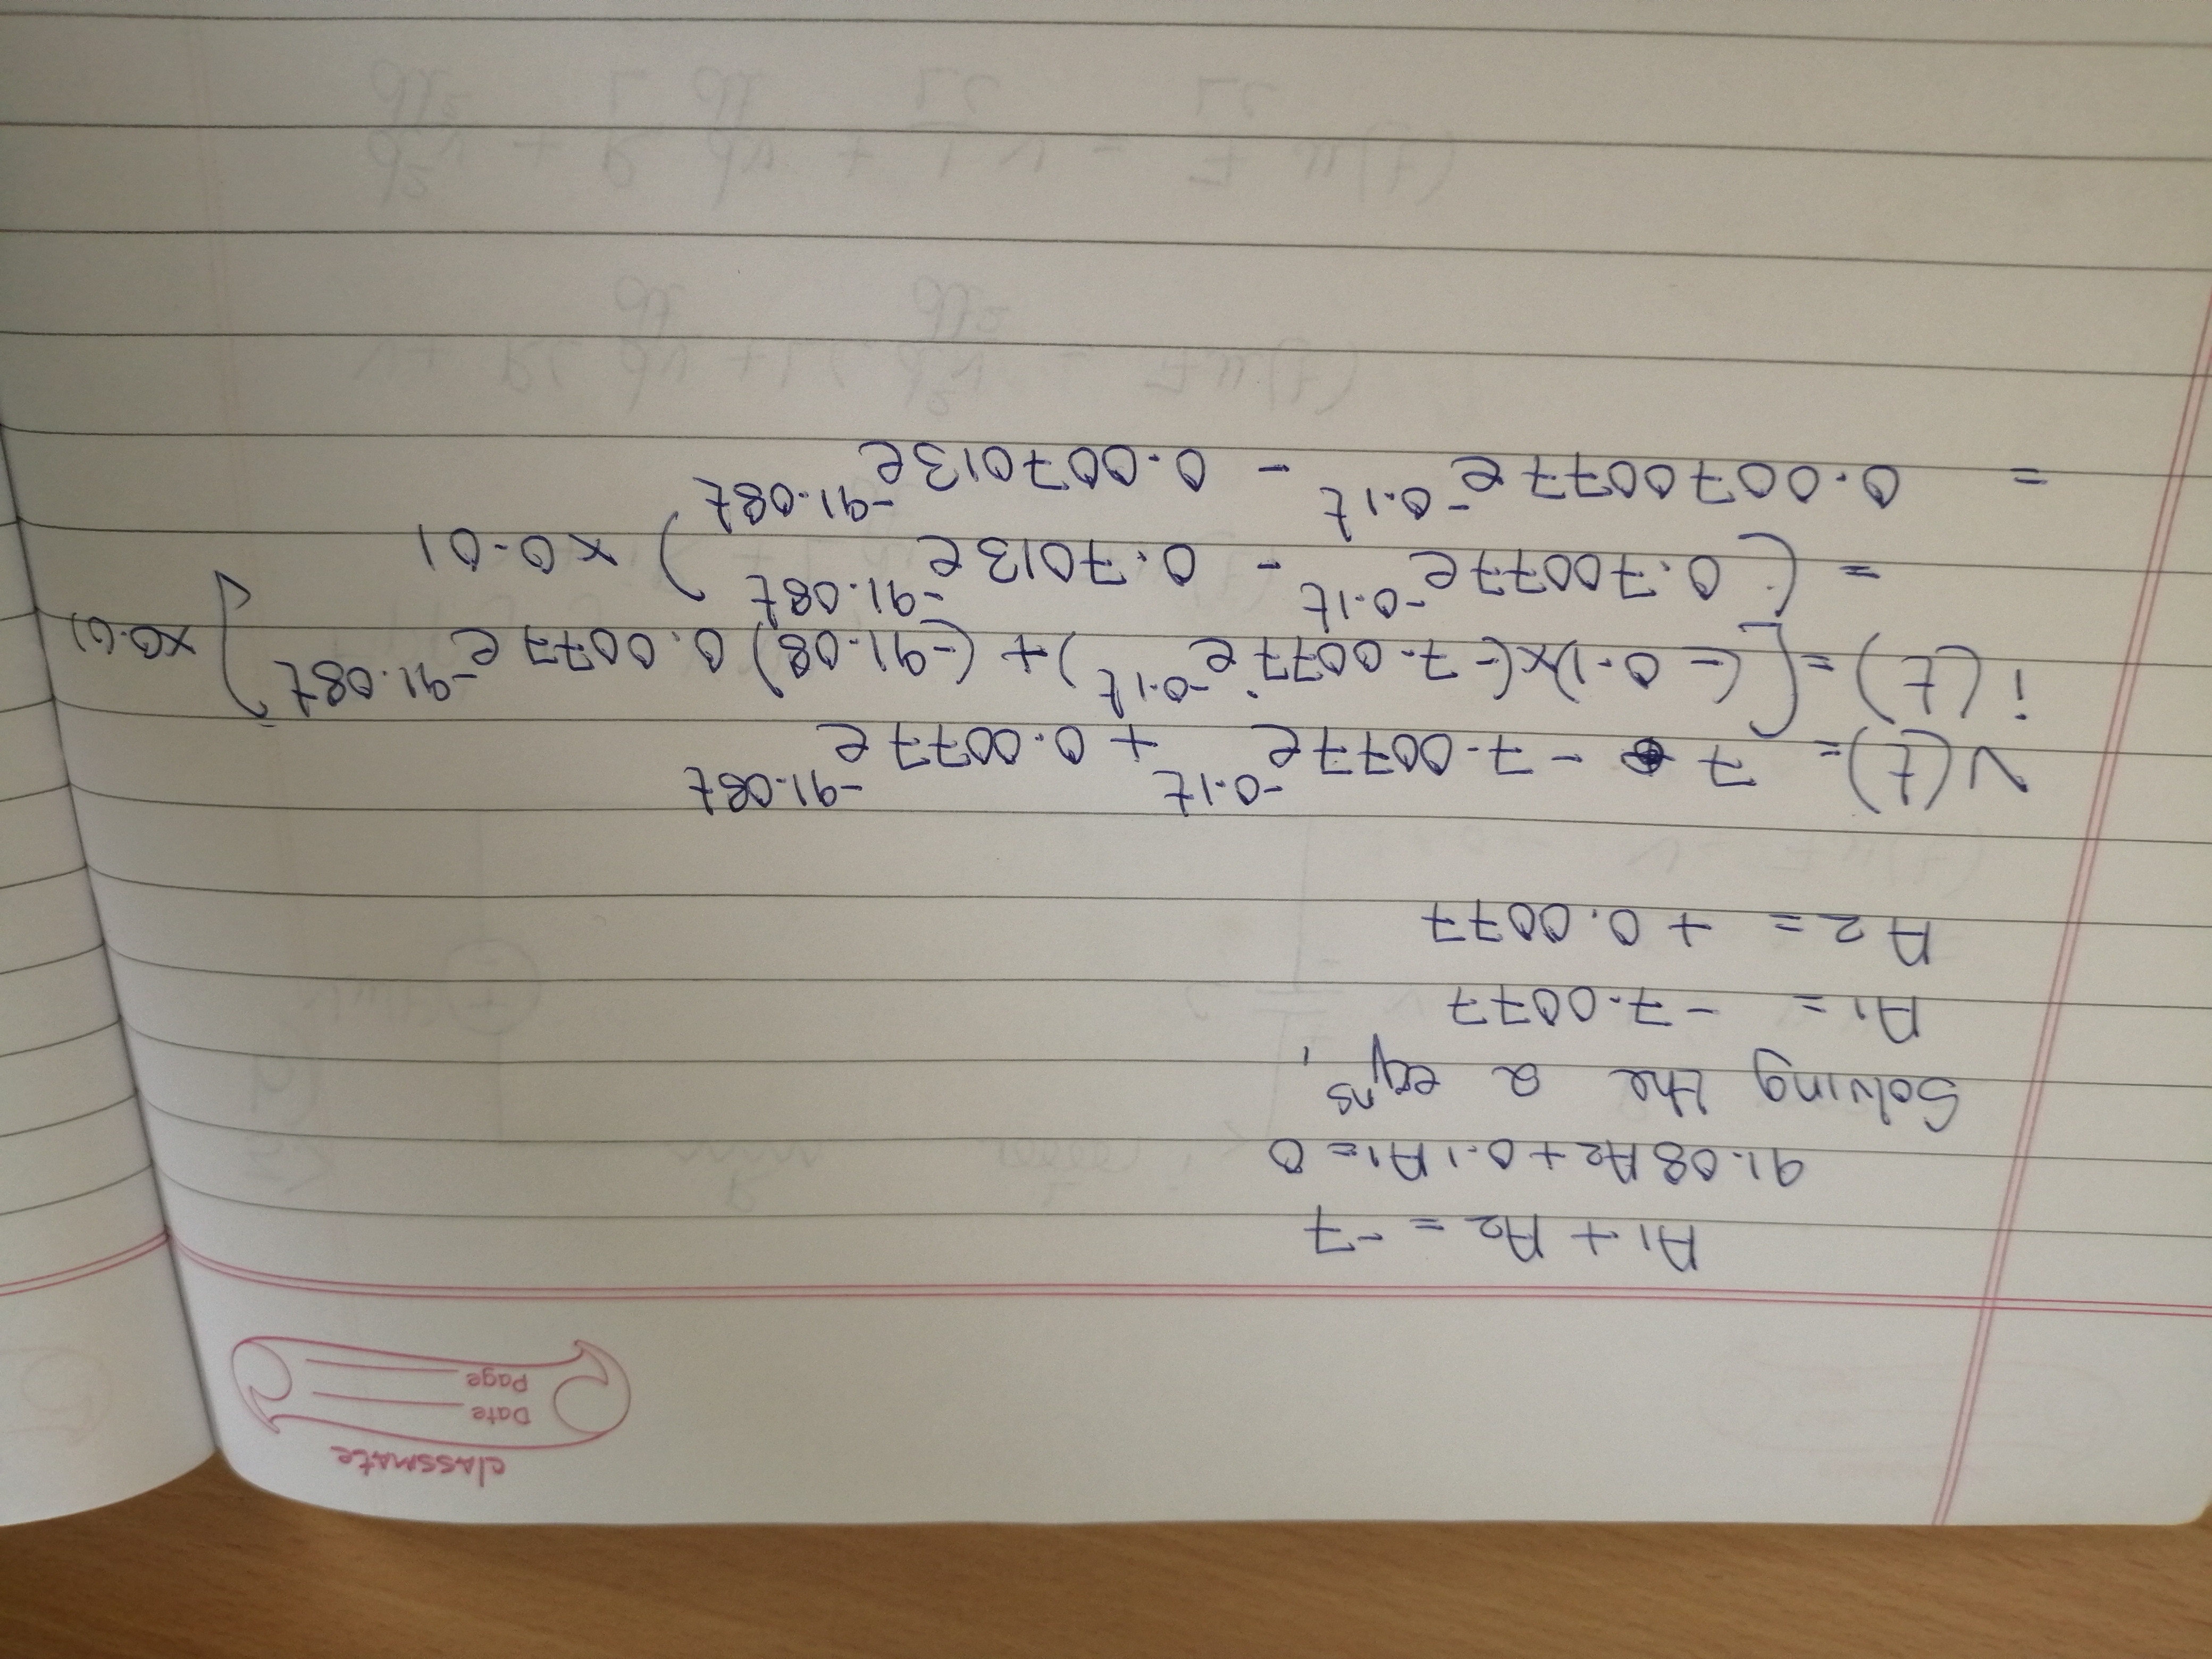 classmate
Date
Page
A1 + A2 = -7
91.08A2 + 0.1 A1 = 0
Solving the 2 eqⁿˢ,
A1 = -7.0077
A2 = +0.0077
v(t) = 7 - 7.0077e^-0.1t + 0.0077e^-91.08t
i(t) = [(-0.1)x(-7.0077e^-0.1t) + (-91.08) 0.0077e^-91.08t] x0.01
= (0.70077e^-0.1t - 0.7013e^-91.08t) x0.01
= 0.0070077e^-0.1t - 0.007013e^-91.08t